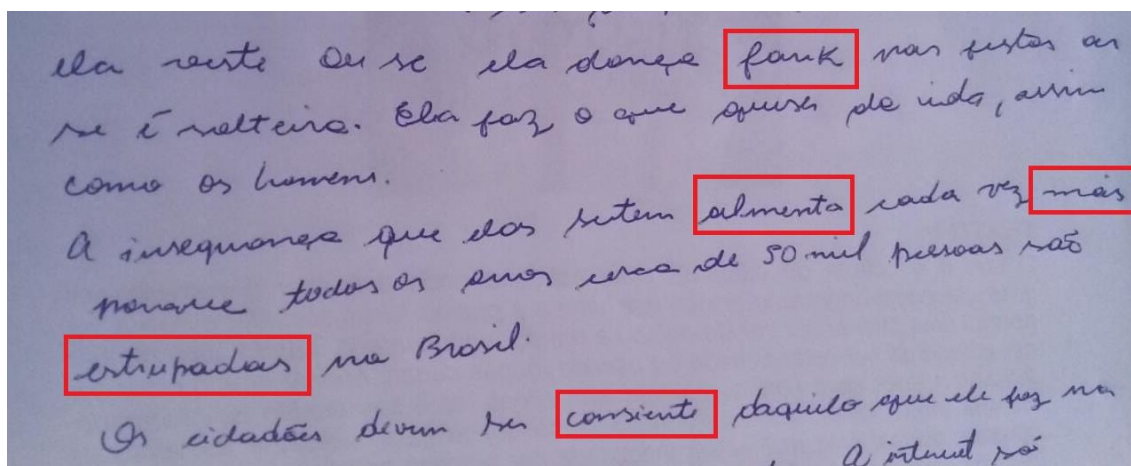 ela veste ou se ela dança fank nas festas ou
se é solteira. Ela faz o que quiser da vida, assim
como os homens.
A insegurança que elas sutem almenta cada vez más
porque todos os anos cerca de 50 mil pessoas são
estrupadas no Brasil.
Os cidadões devem ser consiente daquilo que ele faz na
A internet só